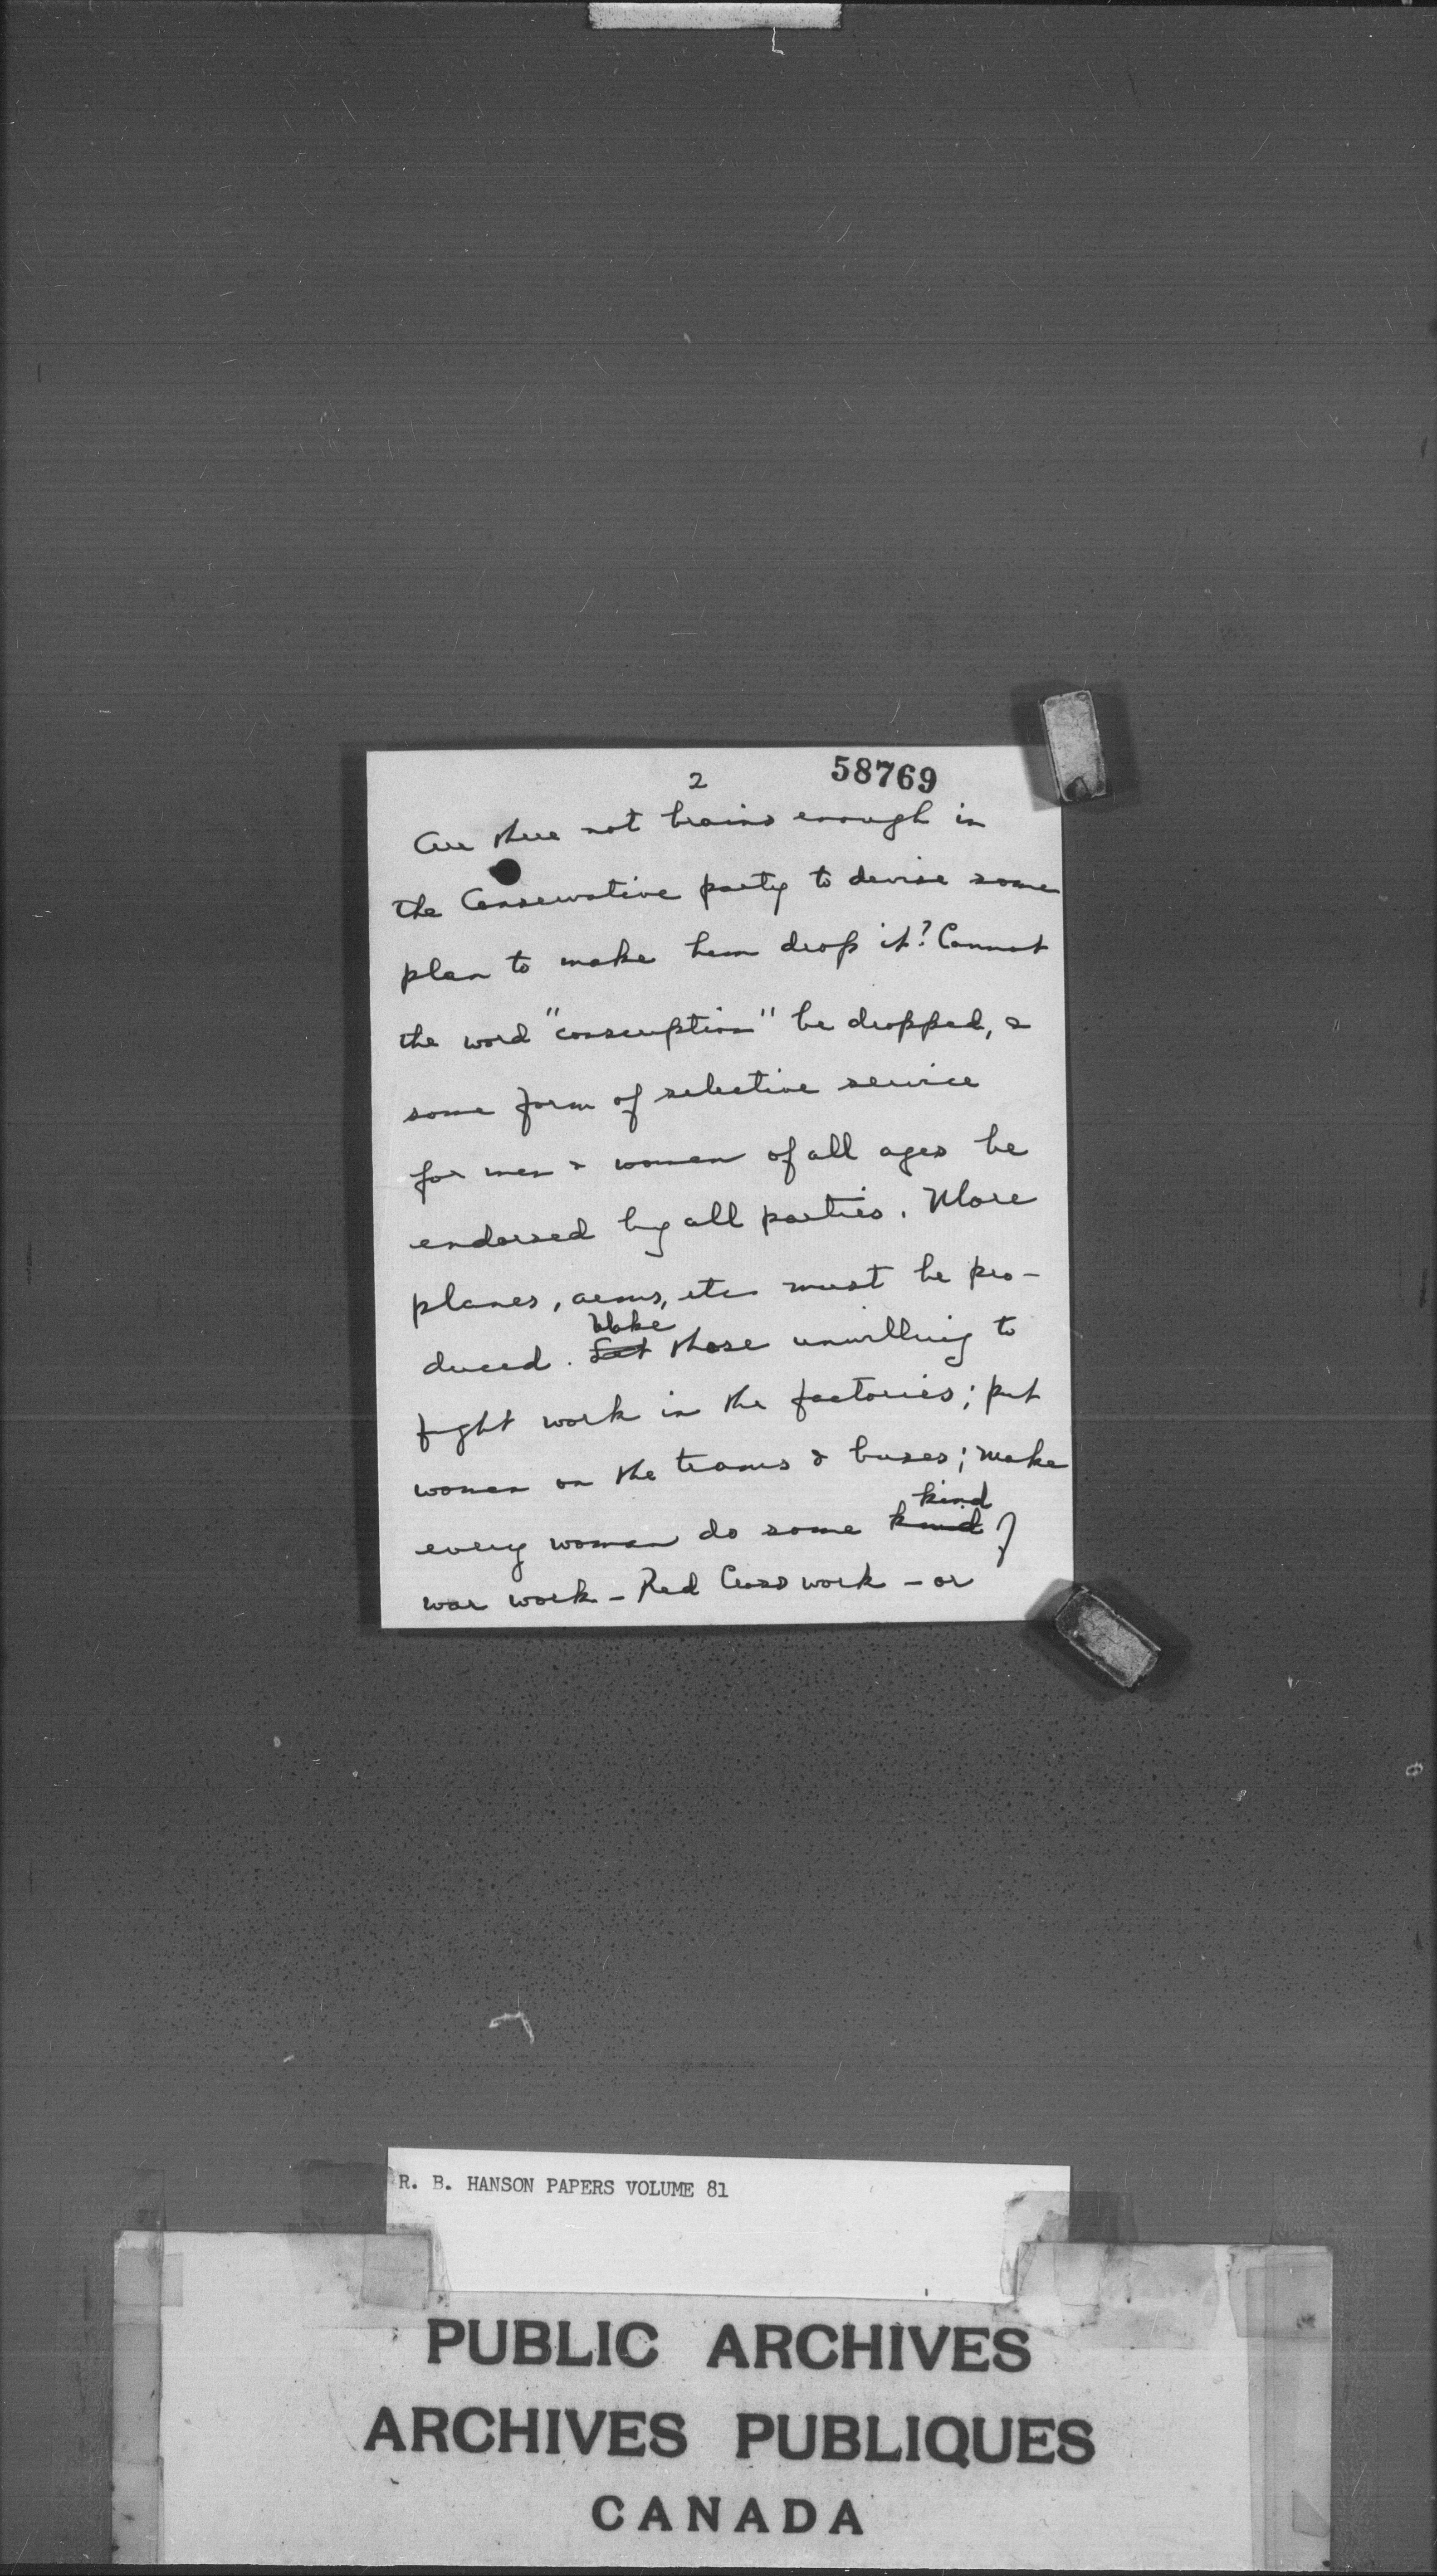 2
58769
Are there not brains enough in
the Conservative party to devise some
plan to make him drop it? Cannot
the word "conscription" be dropped, &
some form of selective service
for men & women of all ages be
endorsed by all parties. More
planes, arms, etc must be pro-
duced. Let Make those unwilling to
fight work in the factories; put
women on the trams & buses; make
every woman do some kind kind of
war work - Red Cross work - or
R. B. HANSON PAPERS VOLUME 81
PUBLIC ARCHIVES
ARCHIVES PUBLIQUES
CANADA